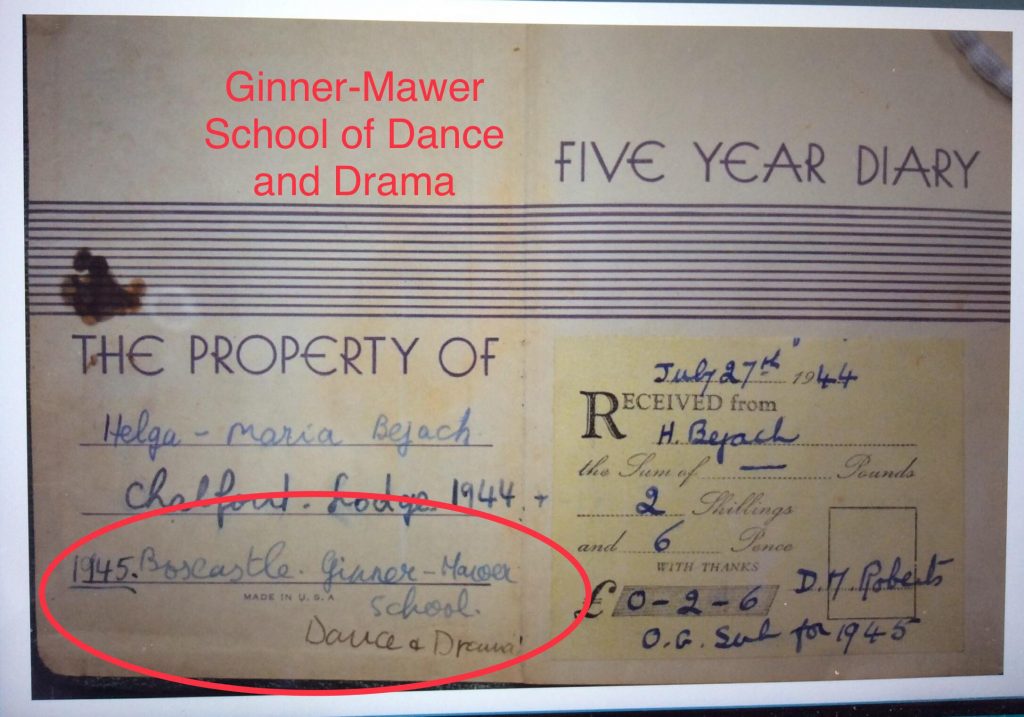 Ginner-Mawer
School of Dance
and Drama
FIVE YEAR DIARY
THE PROPERTY OF
Helga - Maria Bejach
Chalfont. Lodge 1944 +
1945. Boscastle. Ginner-Mawer
MADE IN U.S.A
School.
Dance & Drama
July 27th 1944
RECEIVED from
H. Bejach
the Sum of — Pounds
2 Shillings
and 6 Pence
WITH THANKS
£ 0-2-6
D. M. Roberts
O.G. Sub for 1945